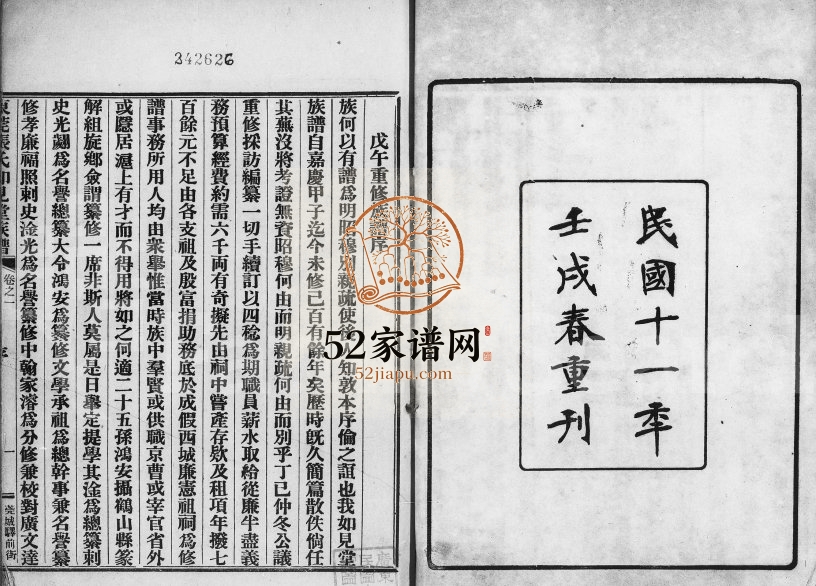 民國十一年
壬戌春重刊
242626
戊午重修族譜序
族何以有譜爲明昭穆別親疏使後人知敦本序倫之誼也我如見堂
族譜自嘉慶甲子迄今未修已百有餘年矣歷時既久簡篇散佚倘任
其蕪沒將考證無資昭穆何由而明親疏何由而別乎丁巳仲冬公議
重修採訪編纂一切手續訂以四稔爲期職員薪水取給從廉半盡義
務預算經費約需六千両有奇擬先由祠中嘗產存欵及租項年撥七
百餘元不足由各支祖及殷富捐助務底於成假西城廉憲祖祠爲修
譜事務所用人均由衆舉惟當時族中羣賢或供職京曹或宰官省外
或隱居滬上有才而不得用將如之何適二十五孫鴻安攝鶴山縣篆
解組旋鄉僉謂纂修一席非斯人莫屬是日舉定提學其淦爲總纂刺
史光翽爲名譽總纂大令鴻安爲纂修文學承祖爲總幹事兼名譽纂
修孝廉福照刺史淦光爲名譽纂修中翰家濬爲分修兼校對廣文達
東莞張氏如見堂族譜
卷之一
序
一
莞城驛前街
52家谱网
52jiapu.com